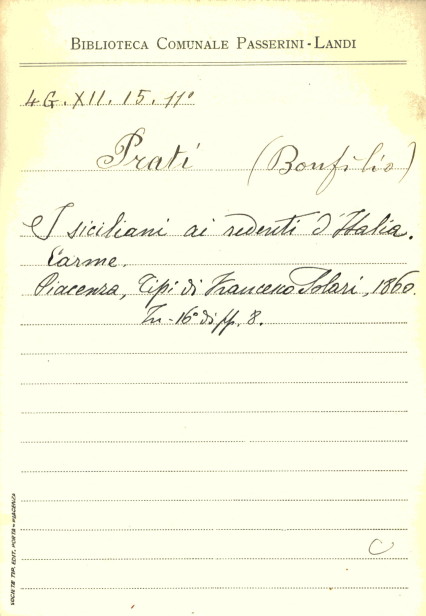 BIBLIOTECA COMUNALE PASSERINI-LANDI
4G.XII.15.11º
Prati (Bonfilio)
I siciliani ai redenti d'Italia.
Carme.
Piacenza, Tipi di Francesco Solari, 1860.
In-16º di pp. 8.
SOCIETÀ TIP. EDIT. PORTA - PIACENZA
C